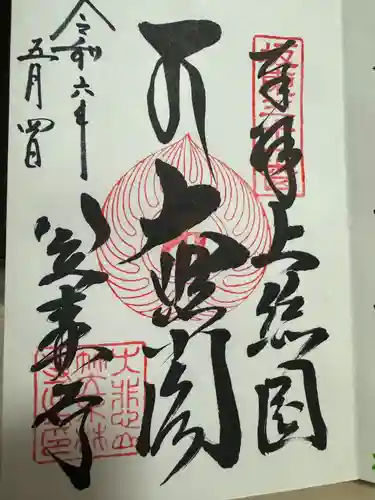 奉拝 上総国
大悲閣
笠森寺
令和六年
五月四日
大悲山